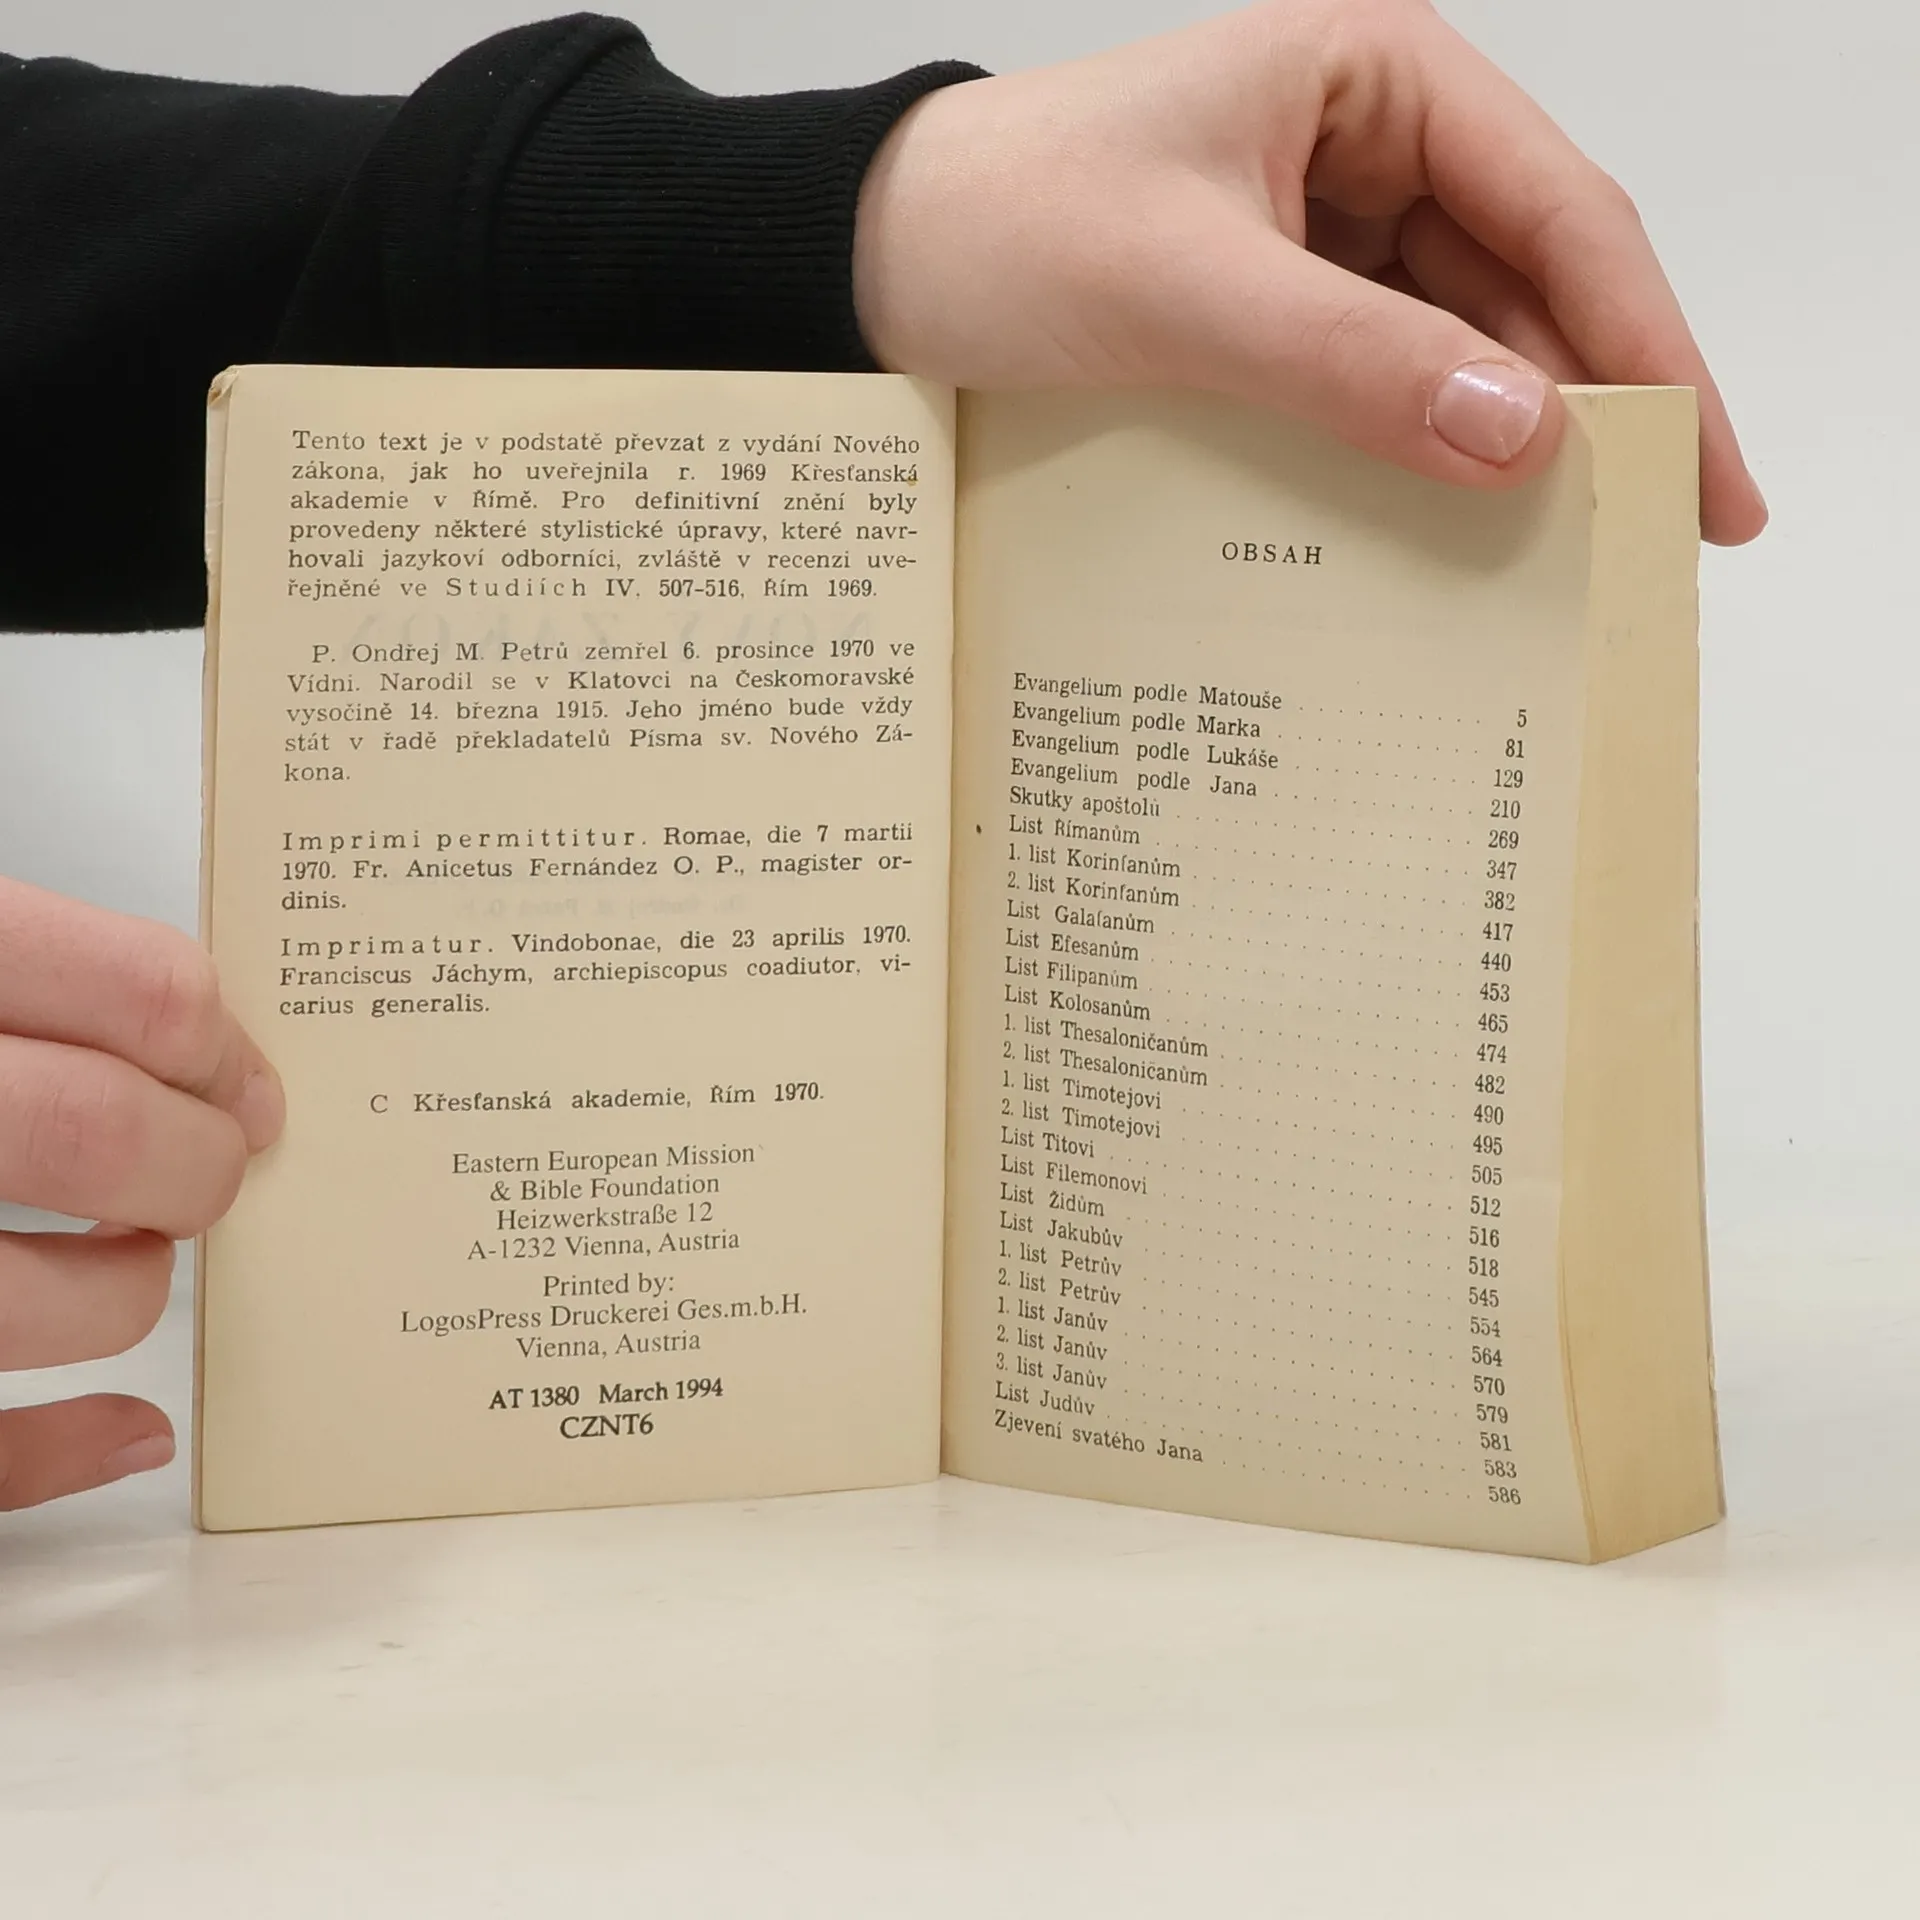 Tento text je v podstatě převzat z vydání Nového
zákona, jak ho uveřejnila r. 1969 Křesťanská
akademie v Římě. Pro definitivní znění byly
provedeny některé stylistické úpravy, které navr-
hovali jazykoví odborníci, zvláště v recenzi uve-
řejněné ve Studiích IV, 507-516, Řím 1969.
P. Ondřej M. Petrů zemřel 6. prosince 1970 ve
Vídni. Narodil se v Klatovci na Českomoravské
vysočině 14. března 1915. Jeho jméno bude vždy
stát v řadě překladatelů Písma sv. Nového Zá-
kona.
Imprimi permittitur. Romae, die 7 martii
1970. Fr. Anicetus Fernández O. P., magister or-
dinis.
Imprimatur. Vindobonae, die 23 aprilis 1970.
Franciscus Jáchym, archiepiscopus coadiutor, vi-
carius generalis.
C Křesťanská akademie, Řím 1970.
Eastern European Mission
& Bible Foundation
Heizwerkstraße 12
A-1232 Vienna, Austria
Printed by:
LogosPress Druckerei Ges.m.b.H.
Vienna, Austria
AT 1380 March 1994
CZNT6
OBSAH
Evangelium podle Matouše . . . . . . . . . . 5
Evangelium podle Marka . . . . . . . . . . 81
Evangelium podle Lukáše . . . . . . . . . . 129
Evangelium podle Jana . . . . . . . . . . 210
Skutky apoštolů . . . . . . . . . . 269
List Římanům . . . . . . . . . . 347
1. list Korinťanům . . . . . . . . . . 382
2. list Korinťanům . . . . . . . . . . 417
List Galaťanům . . . . . . . . . . 440
List Efesanům . . . . . . . . . . 453
List Filipanům . . . . . . . . . . 465
List Kolosanům . . . . . . . . . . 474
1. list Thesaloničanům . . . . . . . . . . 482
2. list Thesaloničanům . . . . . . . . . . 490
1. list Timotejovi . . . . . . . . . . 495
2. list Timotejovi . . . . . . . . . . 505
List Titovi . . . . . . . . . . 512
List Filemonovi . . . . . . . . . . 516
List Židům . . . . . . . . . . 518
List Jakubův . . . . . . . . . . 545
1. list Petrův . . . . . . . . . . 554
2. list Petrův . . . . . . . . . . 564
1. list Janův . . . . . . . . . . 570
2. list Janův . . . . . . . . . . 579
3. list Janův . . . . . . . . . . 581
List Judův . . . . . . . . . . 583
Zjevení svatého Jana . . . . . . . . . . 586